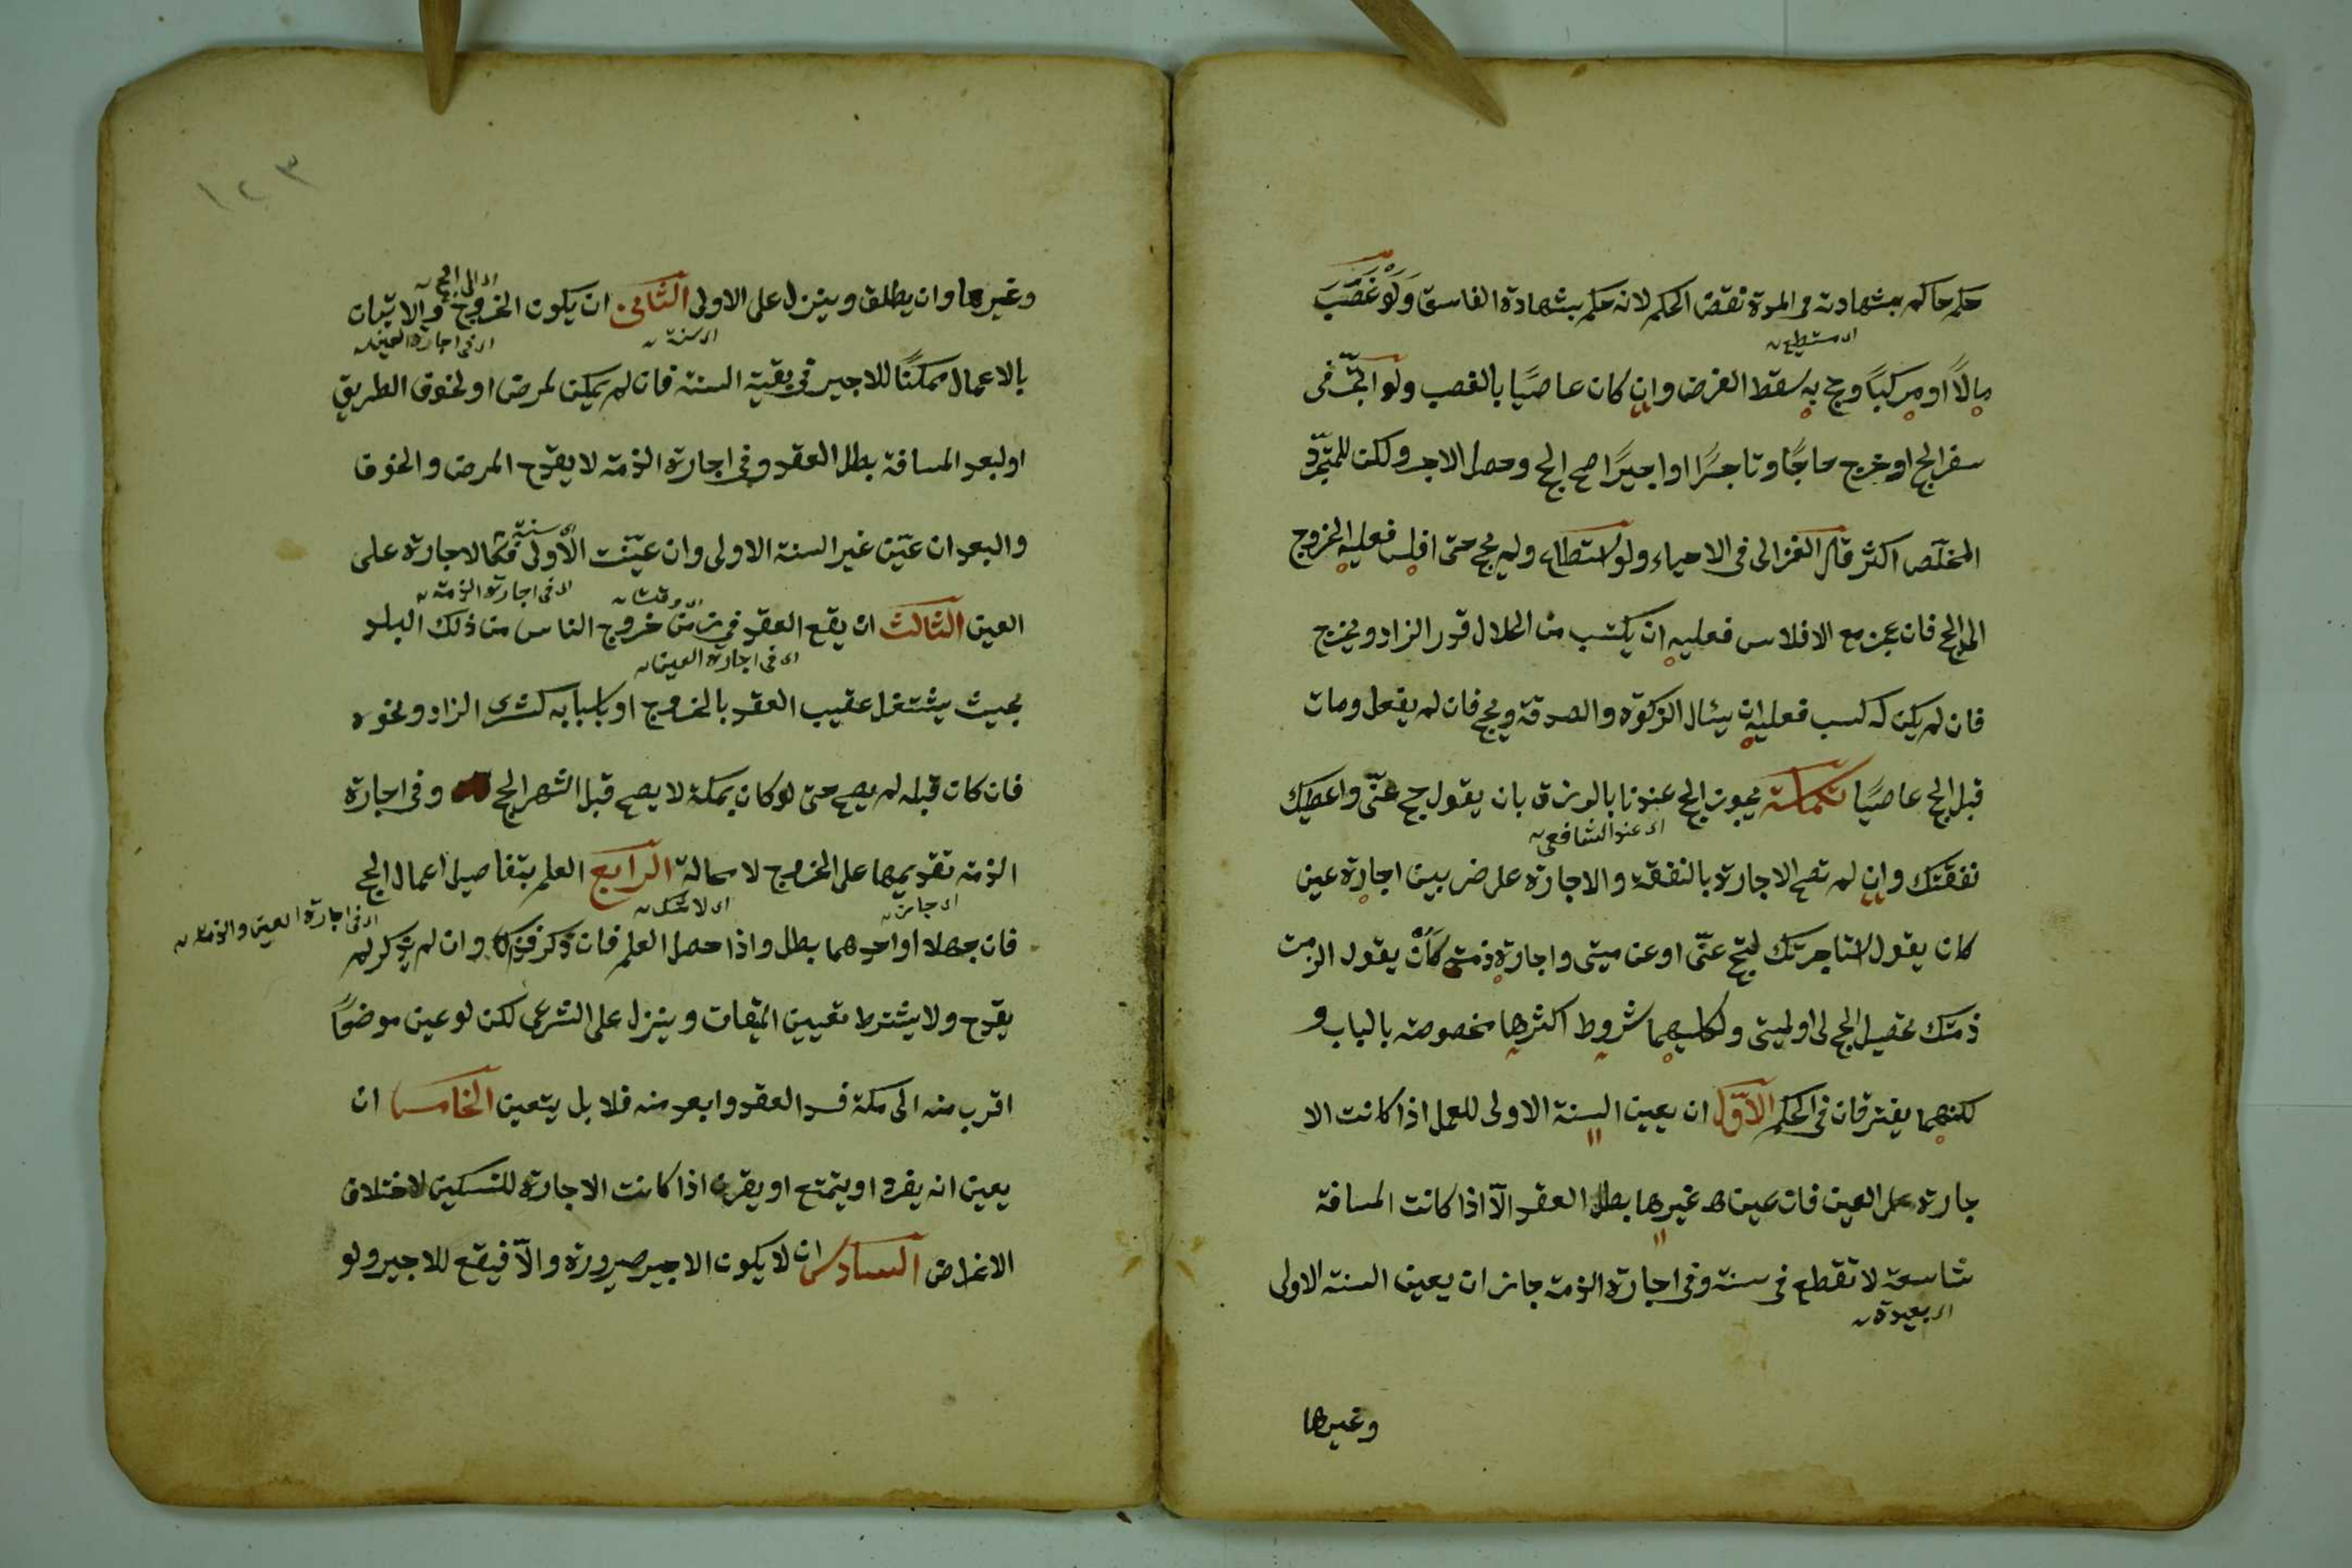 حكم حاكم بشهادته في المدة نقض الحكم لانه حكم بشهادة الفاسق وَلَوْ غَصَبَ
اى مستطيع
مالاً او مركبًا وحج به سقط الفرض وان كان عاصيًا بالغصب ولو اتّجر فى
سفر الحج او خرج حاجًا وتاجرًا او اجيرًا صح الحج وحصل الاجر ولكن للمتجرّد
المخلّص اكثر قال الغزالى فى الاحياء ولو استطاع ولم يحج حتى افلس فعليه الخروج
الى الحج فان عجز مع الافلاس فعليه ان يكتسب من الحلال قدر الزاد ويخرج
فان لم يكن له كسب فعليه ان يسئال الزكوة والصدقة ويحج فان لم يفعل ومات
قبل الحج عاصيًا تكملة يجوز الحج عندنا بالرزق بان يقول حج عنّى واعطيك
اى عند الشافعى
نفقتك وان لم تصح الاجارة بالنفقة والاجارة على ضربين اجارة عين
كان يقول استاجرتك لتحج عنّى او عن ميتى واجارة ذمة كَاَنْ يقول الزمت
ذمتك تحصيل الحج لى او لميتى ولكليهما شروط اكثرها مخصوصة بالباب و
لكنهما يفترقان فى الحكم الاَوّل ان يعين السنة الاولى للعمل اذا كانت الا
جارة على العين فان عين غيرها بطل العقد الاّ اذا كانت المسافة
شاسعة لا تقطع فى سنة وفى اجارة الذمة جاز ان يعين السنة الاولى
اى بعيدة
وغيرها
١٢٣
اى الى الحج
وغيرها وان يطلق وينزل على الاولى الثانى ان يكون الخروج والاتيان
اى سنة
اى فى اجارة العين
بالاعمال ممكنًا للاجير فى بقية السنة فان لم يمكن لمرض او لخوف الطريق
او لبعد المسافة بطل العقد وفى اجارة الذمة لا يقدح المرض والخوف
اى سنة
والبعد ان عيّن غير السنة الاولى وان عيّنت الاولى فكالاجارة على
اى فى اجارة الذمة
اى وقت
العين الثالث ان يقع العقد في زمن خروج الناس من ذلك البلد
اى فى اجارة العين
بحيث يشتغل عقيب العقد بالخروج او باسبابه كشرى الزاد ونحوه
فان كان قبله لم يصح حتى لو كان بمكة لا يصح قبل اشهر الحج وفى اجارة
الذمة تقديمها على الخروج لا محالة الرابع العلم بتفاصيل اعمال الحج
اى جائز
اى لا شك
اى فى اجارة العين والذمة
فان جهلا او احدهما بطل واذا حصل العلم فان ذكر فذاك وان لم يذكر لم
يقدح ولا يشترط تعيين الميقات وينزل على الشرعى لكن لو عين موضعًا
اقرب منه الى مكة فسد العقد وابعد منه فلا بل يتعين الخامس ان
يعين انه يفرد او يتمتع او يقرن اذا كانت الاجارة للنسكين لاختلاف
الاغراض السادس ان لا يكون الاجير صرورة والاّ فيقع للاجير ولو